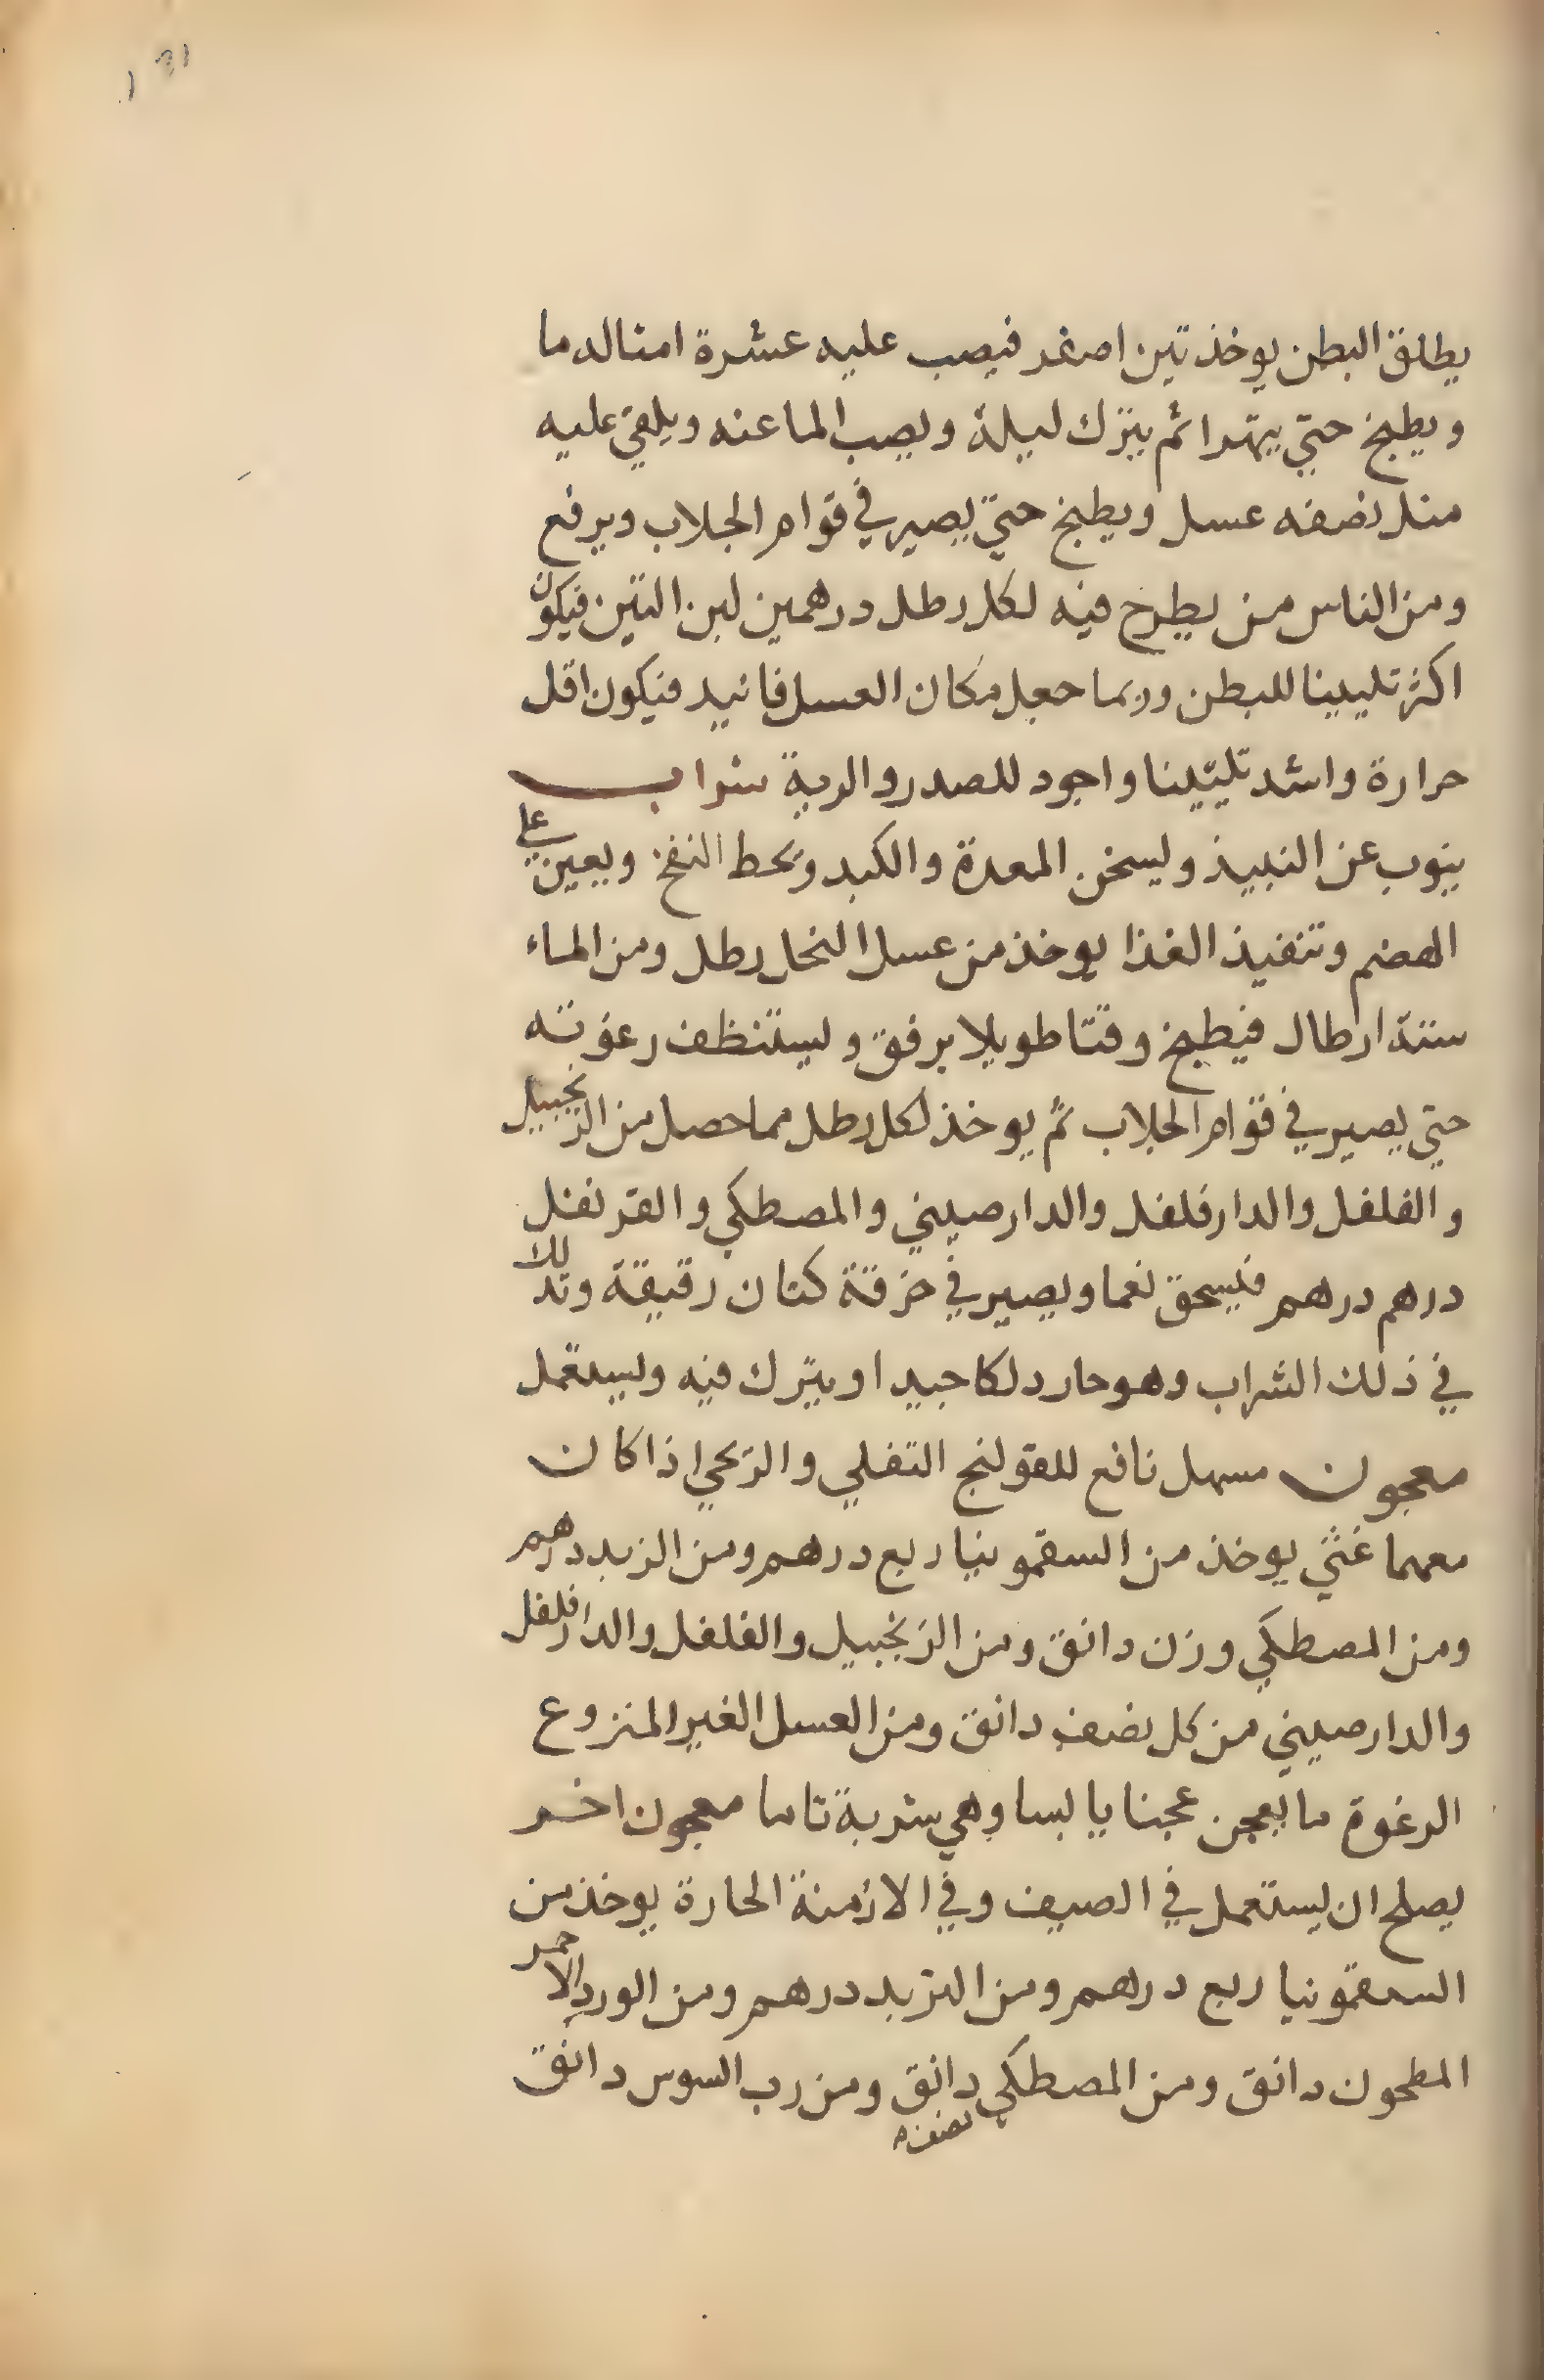 يطلق البطن يوخذ تين اصغر فيصب عليه عشرة امثاله ما
ويطبخ حتى يتهرا ثم يترك ليلة ويصب الما عنه ويلقى عليه
مثل نصفه عسل ويطبخ حتى يصير في قوام الجلاب ويرفع
ومن الناس من يطرح فيه لكل رطل درهمين لبن التين فيكون
اكثر تليينا للبطن وربما جعل مكان العسل فانيد فيكون اقل
حرارة واشد تليينا واجود للصدر والرية شراب
ينوب عن النبيذ ويسخن المعدة والكبد ويحط النفخ ويعين على
الهضم وتنفيذ الغذا يوخذ من عسل النحل رطل ومن الماء
ستة ارطال فيطبخ وقتا طويلا برفق ويستنظف رغوته
حتى يصير في قوام الجلاب ثم يوخذ لكل رطل مما حصل من الزنجبيل
والفلفل والدارفلفل والدارصيني والمصطكي والقرنفل
درهم درهم فيسحق نعما ويصير في خرقة كتان رقيقة وتدلك
في ذلك الشراب وهو حار دلكا جيدا ويترك فيه ويستعمل
معجون مسهل نافع للقولنج التفلي والريحي اذا كان
معهما غثي يوخذ من السقمونيا ربع درهم ومن الزبد درهم
ومن المصطكي وزن دانق ومن الزنجبيل والفلفل والدارفلفل
والدارصيني من كل نصف دانق ومن العسل الغير المنزوع
الرغوة ما يعجن عجنا يابسا وهي شربة تاما معجون اخر
يصلح ان يستعمل في الصيف وفي الازمنة الحارة يوخذ من
السقمونيا ربع درهم ومن التربد درهم ومن الورد الاحمر
المطحون دانق ومن المصطكي دانق ومن رب السوس دانق
نصف